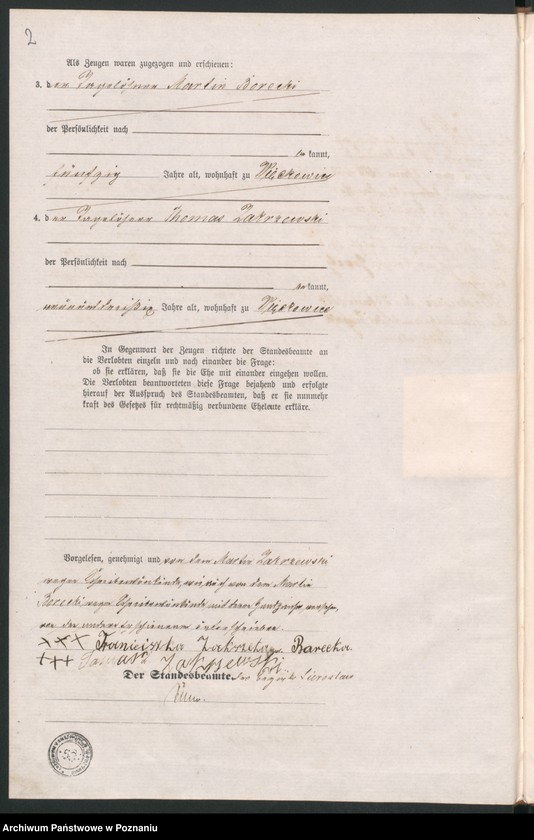 2
Als Zeugen waren zugezogen und erschienen:
3. der Tagelöhner Martin Borecki
der Persönlichkeit nach
be kannt,
fünfzig Jahre alt, wohnhaft zu Więckowice
4. der Tagelöhner Thomas Zakrzewski
der Persönlichkeit nach
be kannt,
neununddreißig Jahre alt, wohnhaft zu Więckowice
In Gegenwart der Zeugen richtete der Standesbeamte an
die Verlobten einzeln und nach einander die Frage:
ob sie erklären, daß sie die Ehe mit einander eingehen wollen.
Die Verlobten beantworteten diese Frage bejahend und erfolgte
hierauf der Ausspruch des Standesbeamten, daß er sie nunmehr
kraft des Gesetzes für rechtmäßig verbundene Eheleute erkläre.
Vorgelesen, genehmigt und von dem Martin Zakrzewski
wegen Schreibensunkunde, wie auch von dem Martin
Borecki wegen Schreibensunkunde mit ihren Handzeichen versehen,
von den unterschrieben.
+++ Franciszka Zakrzewska Barecka
+++ Tomasz Zakrzewski
Der Standesbeamte.
Archiwum Państwowe w Poznaniu